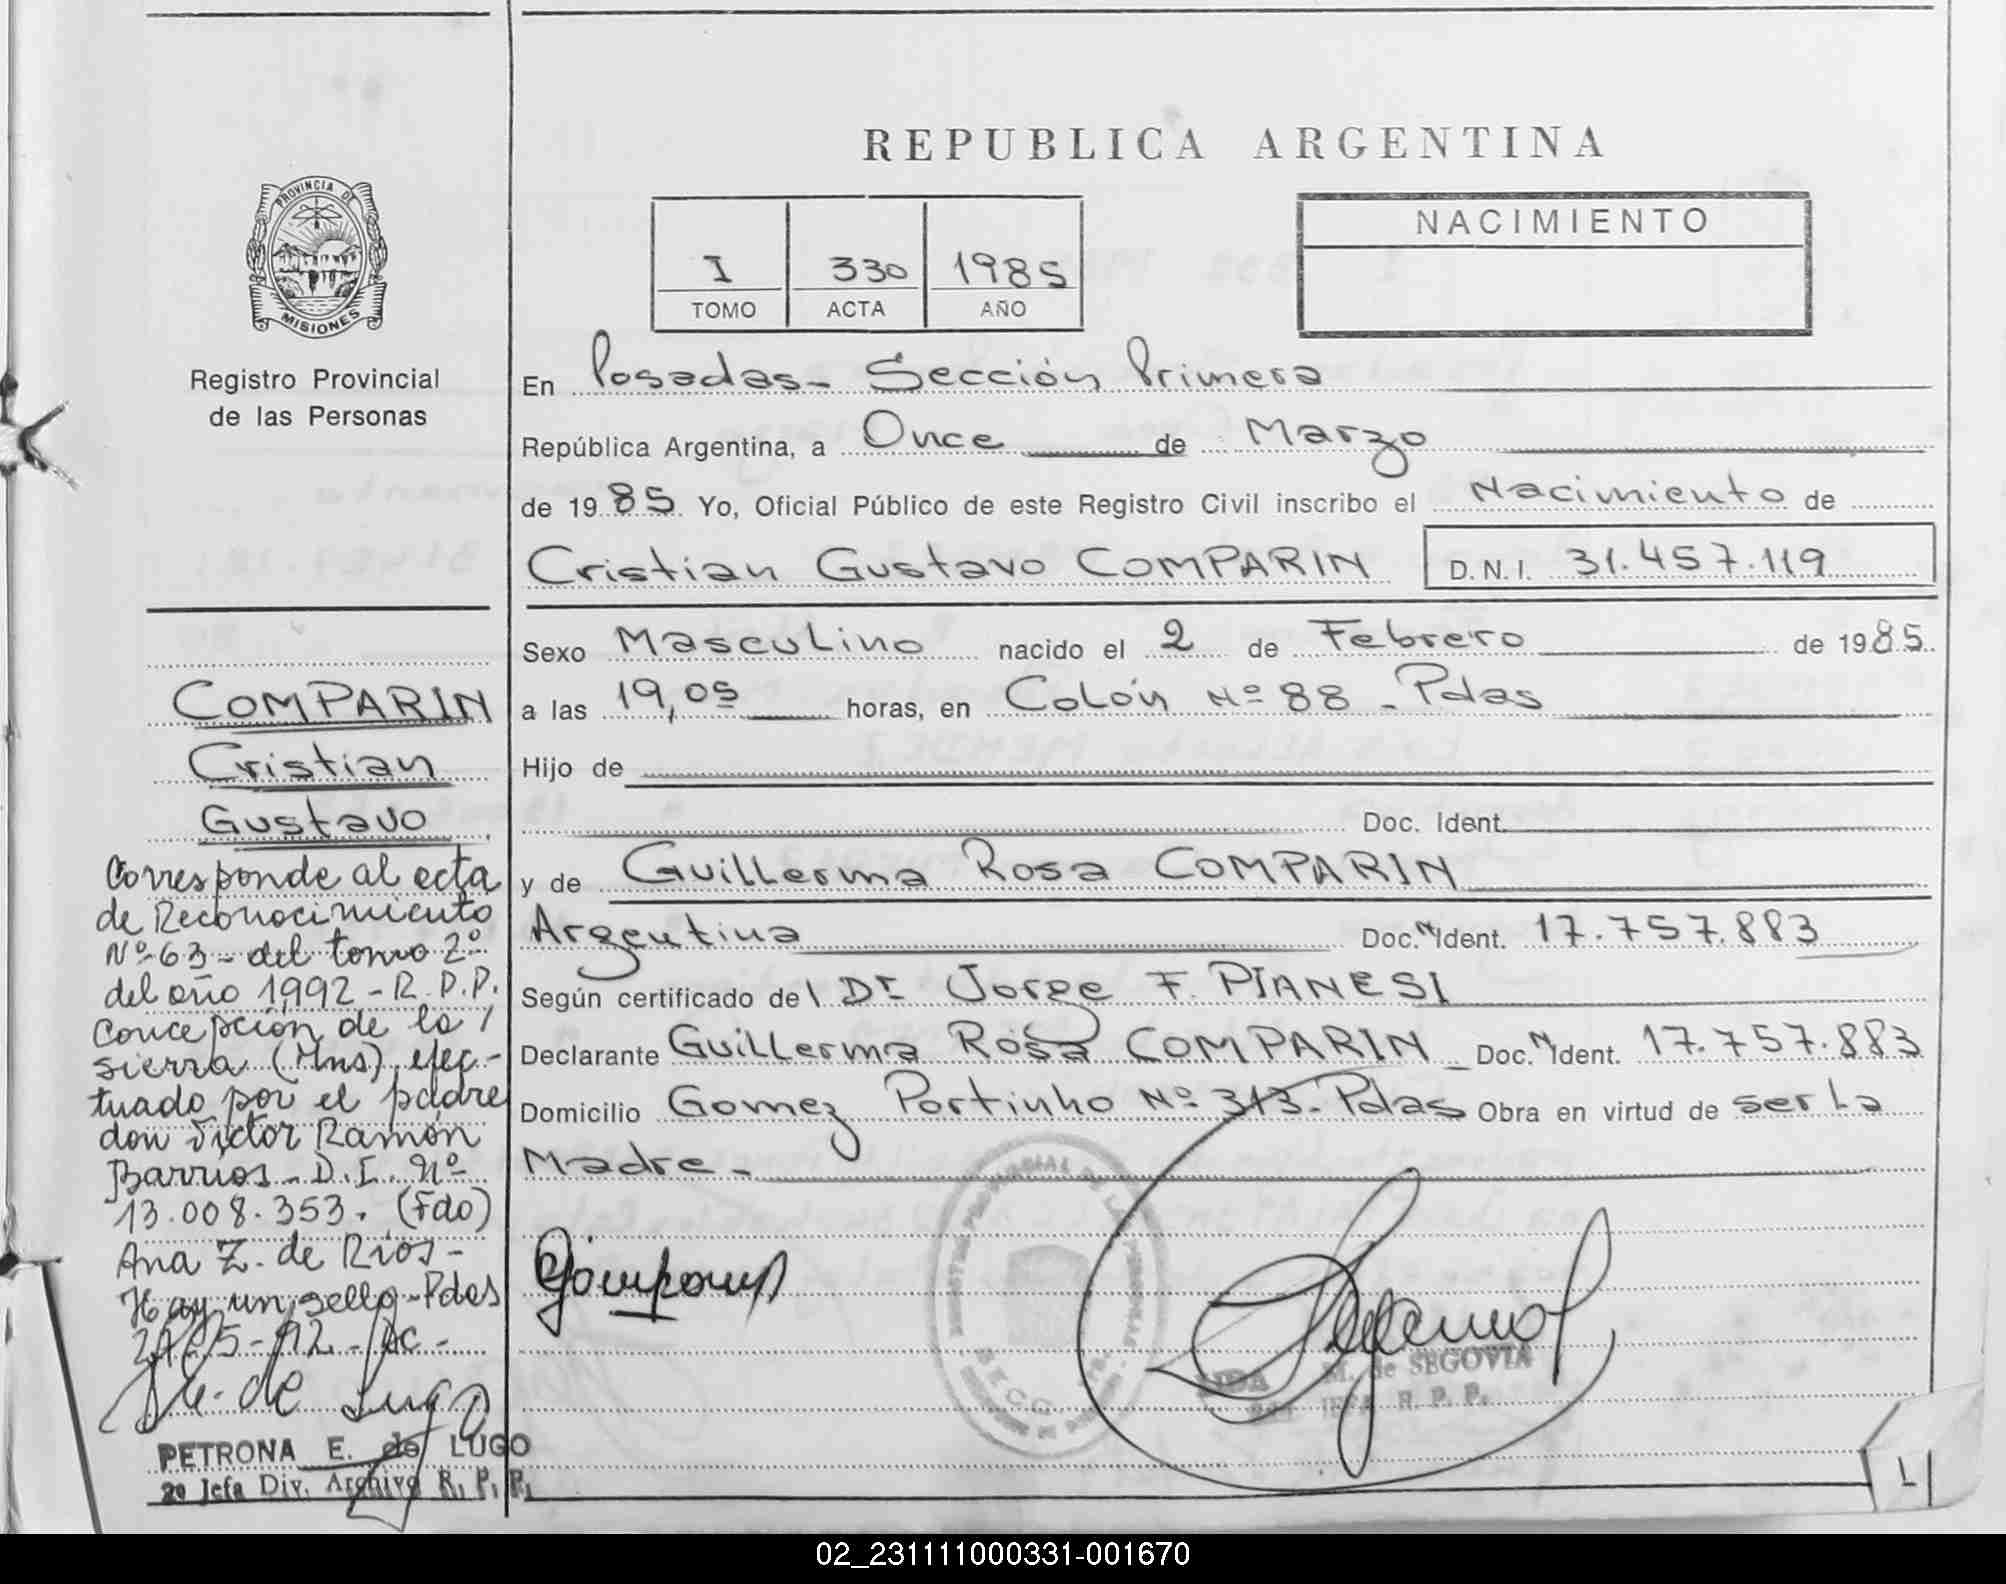 REPUBLICA ARGENTINA
PROVINCIA DE
MISIONES
Registro Provincial
de las Personas
I 330 1985
TOMO ACTA AÑO
NACIMIENTO
En Posadas - Sección Primera
República Argentina, a Once de Marzo
de 1985 Yo, Oficial Público de este Registro Civil inscribo el Nacimiento de
Cristian Gustavo COMPARIN D.N.I. 31.457.119
Sexo Masculino nacido el 2 de Febrero de 1985
a las 19,05 horas, en Colón Nº 88 - Pdas
Hijo de
Doc. Ident.
y de Guillerma Rosa COMPARIN
Argentina Doc. N Ident. 17.757.883
Según certificado del Dr. Jorge F. PIANESI
Declarante Guillerma Rosa COMPARIN - Doc. N Ident. 17.757.883
Domicilio Gomez Portinho Nº 313 - Pdas Obra en virtud de ser la
Madre -
M. de SEGOVIA
JEFA R. P. P.
COMPARIN
Cristian
Gustavo
Corresponde al acta
de Reconocimiento
Nº 63 - del tomo 2º
del año 1992 - R.P.P.
Concepción de la
sierra (Mns) efec-
tuado por el padre
don Victor Ramón
Barrios - D.I. Nº
13.008.353. (Fdo)
Ana Z. de Rios -
Hay un sello - Pdas
PETRONA E. de LUGO
2º Jefa Div. Archivo R. P. P.
02_231111000331-001670